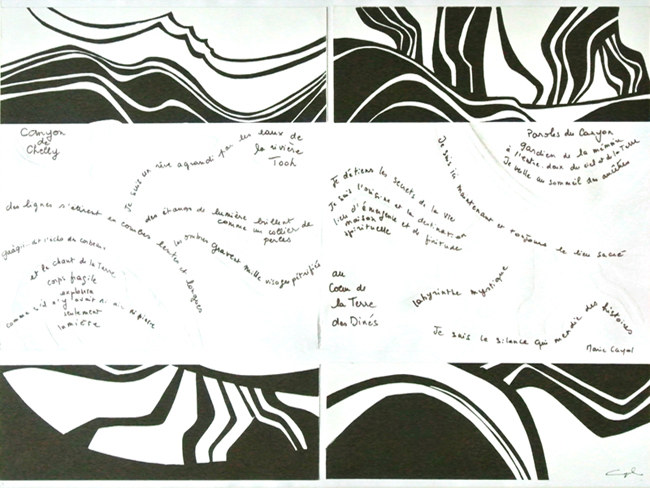 Canyon
de
Chelly
Je suis un rêve agrandi par les eaux de
la rivière
Tooh
des lignes s'étirent en courbes lentes et longues
des étangs de lumière brillent
comme un collier de
perles
les ombres gravent mille visages pétrifiés
l'écho du corbeau
et le chant de la Terre
corps fragile
explosera
comme s'il n'y avait ni air ni pierre
seulement
lumière
Paroles du Canyon
gardien de la mémoire
à l'entre-deux du ciel et de la Terre
Je veille au sommeil des ancêtres
Je suis ici maintenant et toujours le lieu sacré
Je détiens les secrets de la vie
Je suis l'origine et la destination
lieu d'émergence et de finitude
maison
spirituelle
au
Cœur de
la Terre
des Dinés
labyrinthe mystique
Je suis le silence qui mendie des histoires